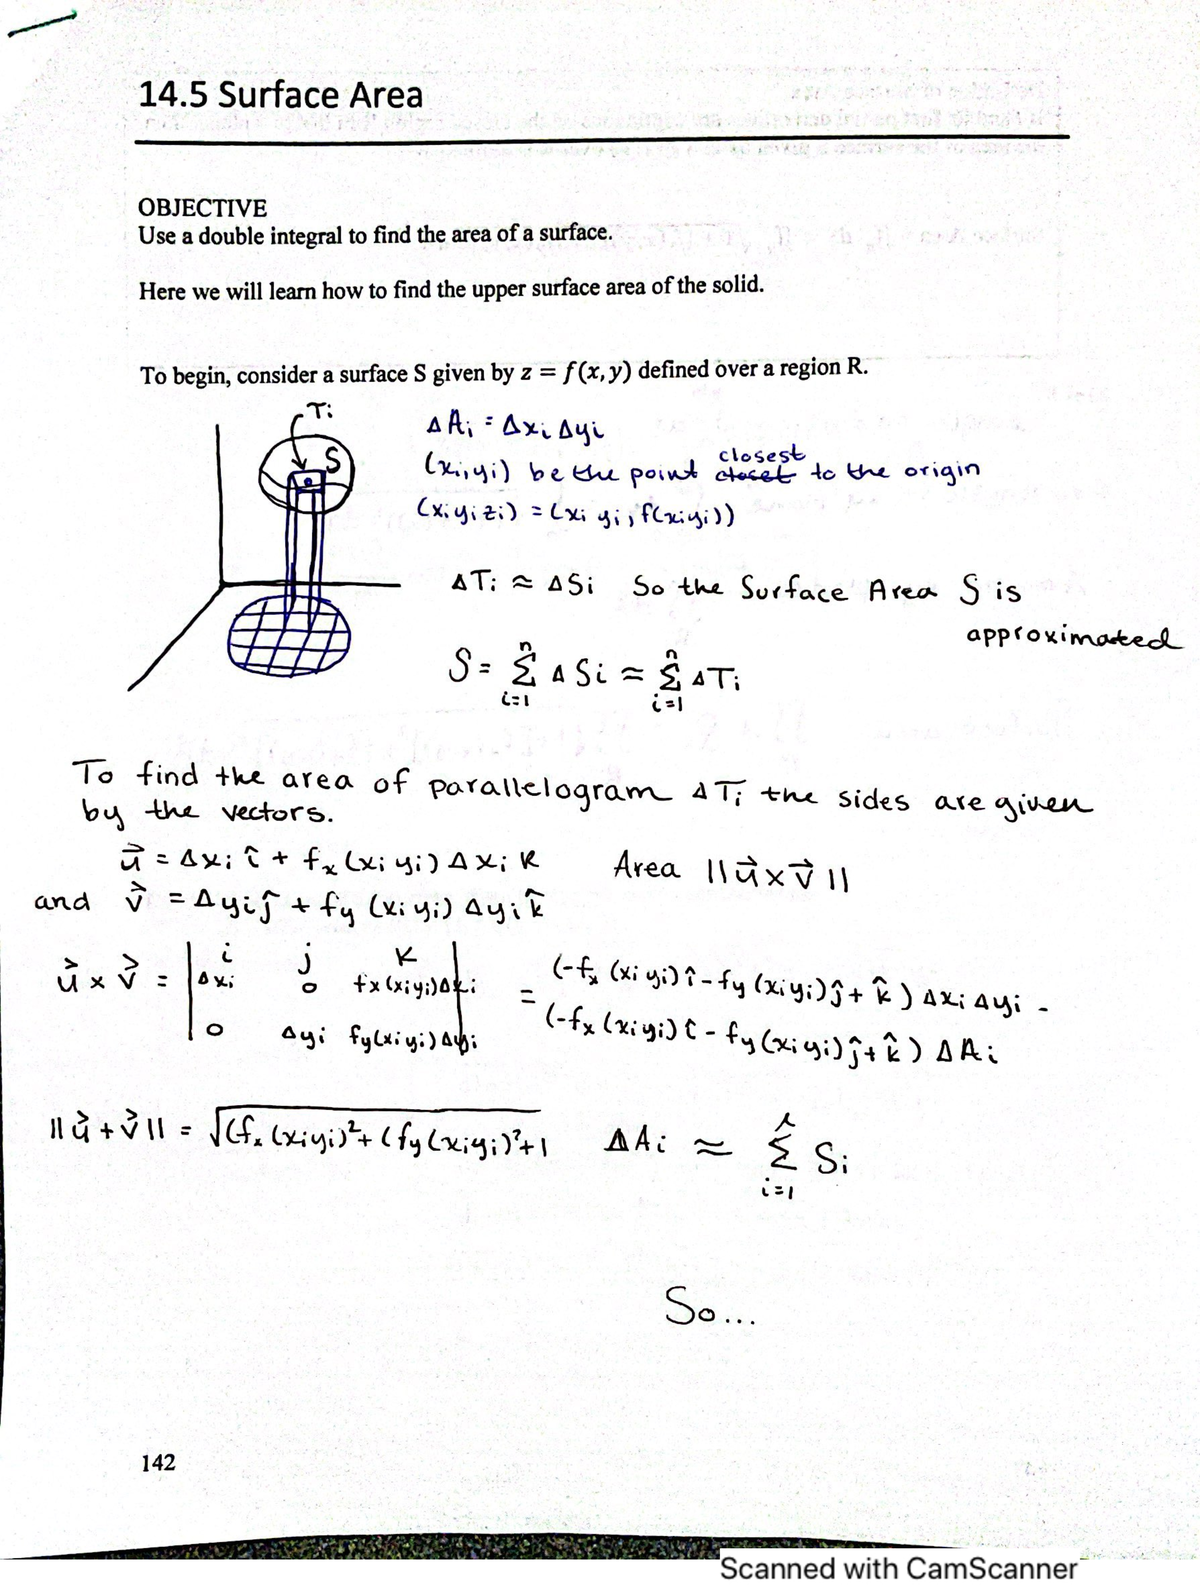 14.5 Surface Area
OBJECTIVE
Use a double integral to find the area of a surface.
Here we will learn how to find the upper surface area of the solid.
To begin, consider a surface S given by z = f(x, y) defined over a region R.
Ti
S
ΔAi = Δxi Δyi
(xi, yi) be the point closet to the origin
closest
(xi yi zi) = (xi yi, f(xi yi))
ΔTi ≈ ΔSi So the Surface Area S is
approximated
S = Σ_{i=1}^{n} ΔSi ≈ Σ_{i=1}^{n} ΔTi
To find the area of parallelogram ΔTi the sides are given
by the vectors.
u⃗ = Δxi î + fx(xi yi) Δxi k Area ||u⃗ x v⃗||
and v⃗ = Δyi ĵ + fy (xi yi) Δyi k̂
u⃗ x v⃗ = | i j k
Δxi 0 fx(xi yi)Δxi
0 Δyi fy(xi yi)Δyi |
= (-fx (xi yi) î - fy (xi yi) ĵ + k̂) Δxi Δyi -
(-fx (xi yi) î - fy (xi yi) ĵ + k̂) ΔAi
||u⃗ + v⃗|| = √(fx (xi yi)² + (fy (xi yi)² + 1 ΔAi ≈ Σ_{i=1} Si
So...
142
Scanned with CamScanner